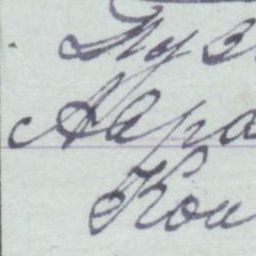 Пуз
Авра
Кон